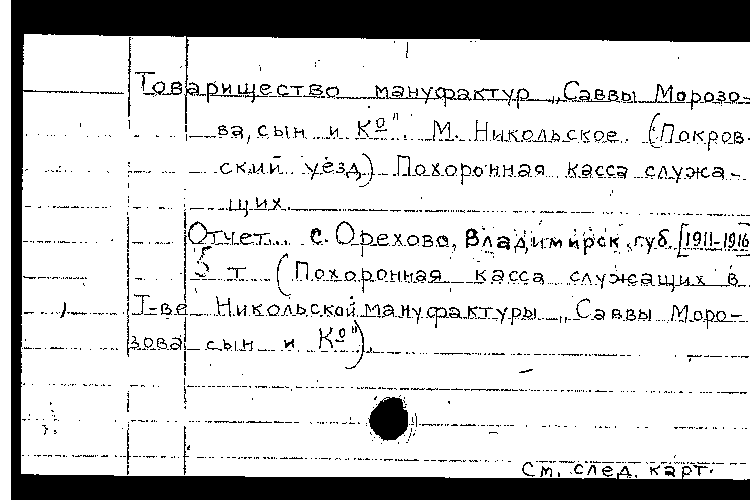 Товарищество мануфактур „Саввы Морозо-
ва, сын и К°". М. Никольское. (Покров-
ский уезд) Похоронная касса служа-
щих.
Отчет.. с. Орехово, Владимирск. губ. [1911-1916
5 т (Похоронная касса служащих в
Т-ве Никольской мануфактуры „Саввы Моро-
зова сын и К°").
См. след. карт.